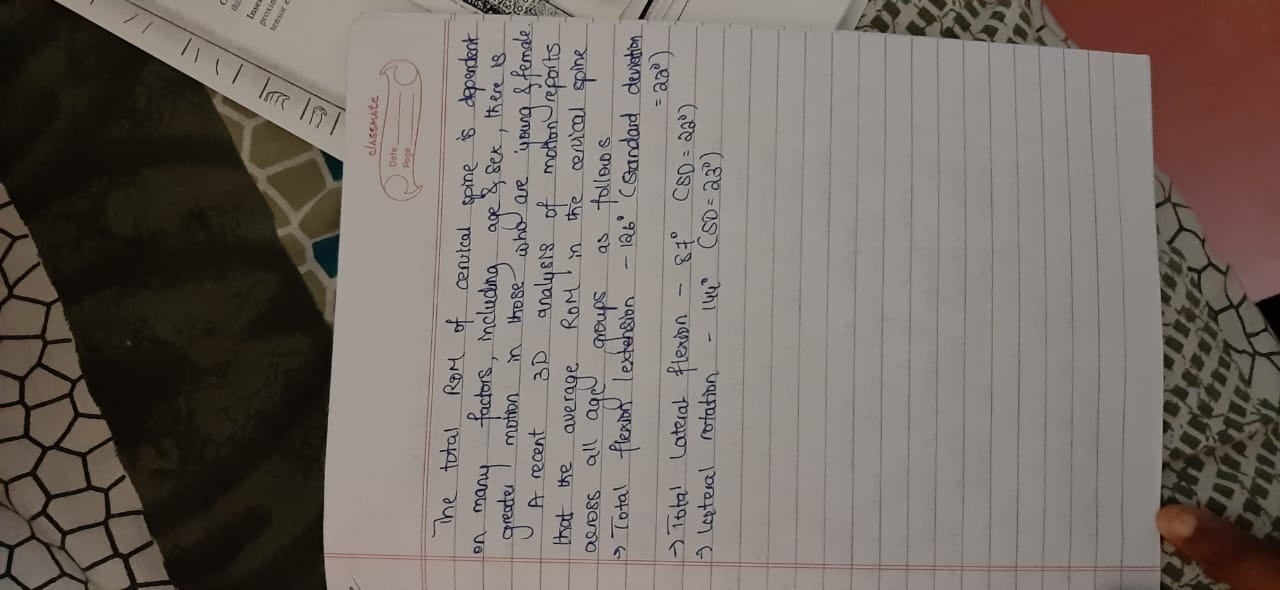 classmate
Date
Page
The total ROM of cervical spine is dependent
on many factors, including age & sex, there is
greater motion in those who are young & female.
A recent 3D analysis of motion reports
that the average ROM in the cervical spine
across all age groups as follows
→ Total flexion/extension - 126° (standard deviation
= 22°)
→ Total Lateral flexion - 87° (SD = 22°)
→ Lateral rotation - 144° (SD = 23°)